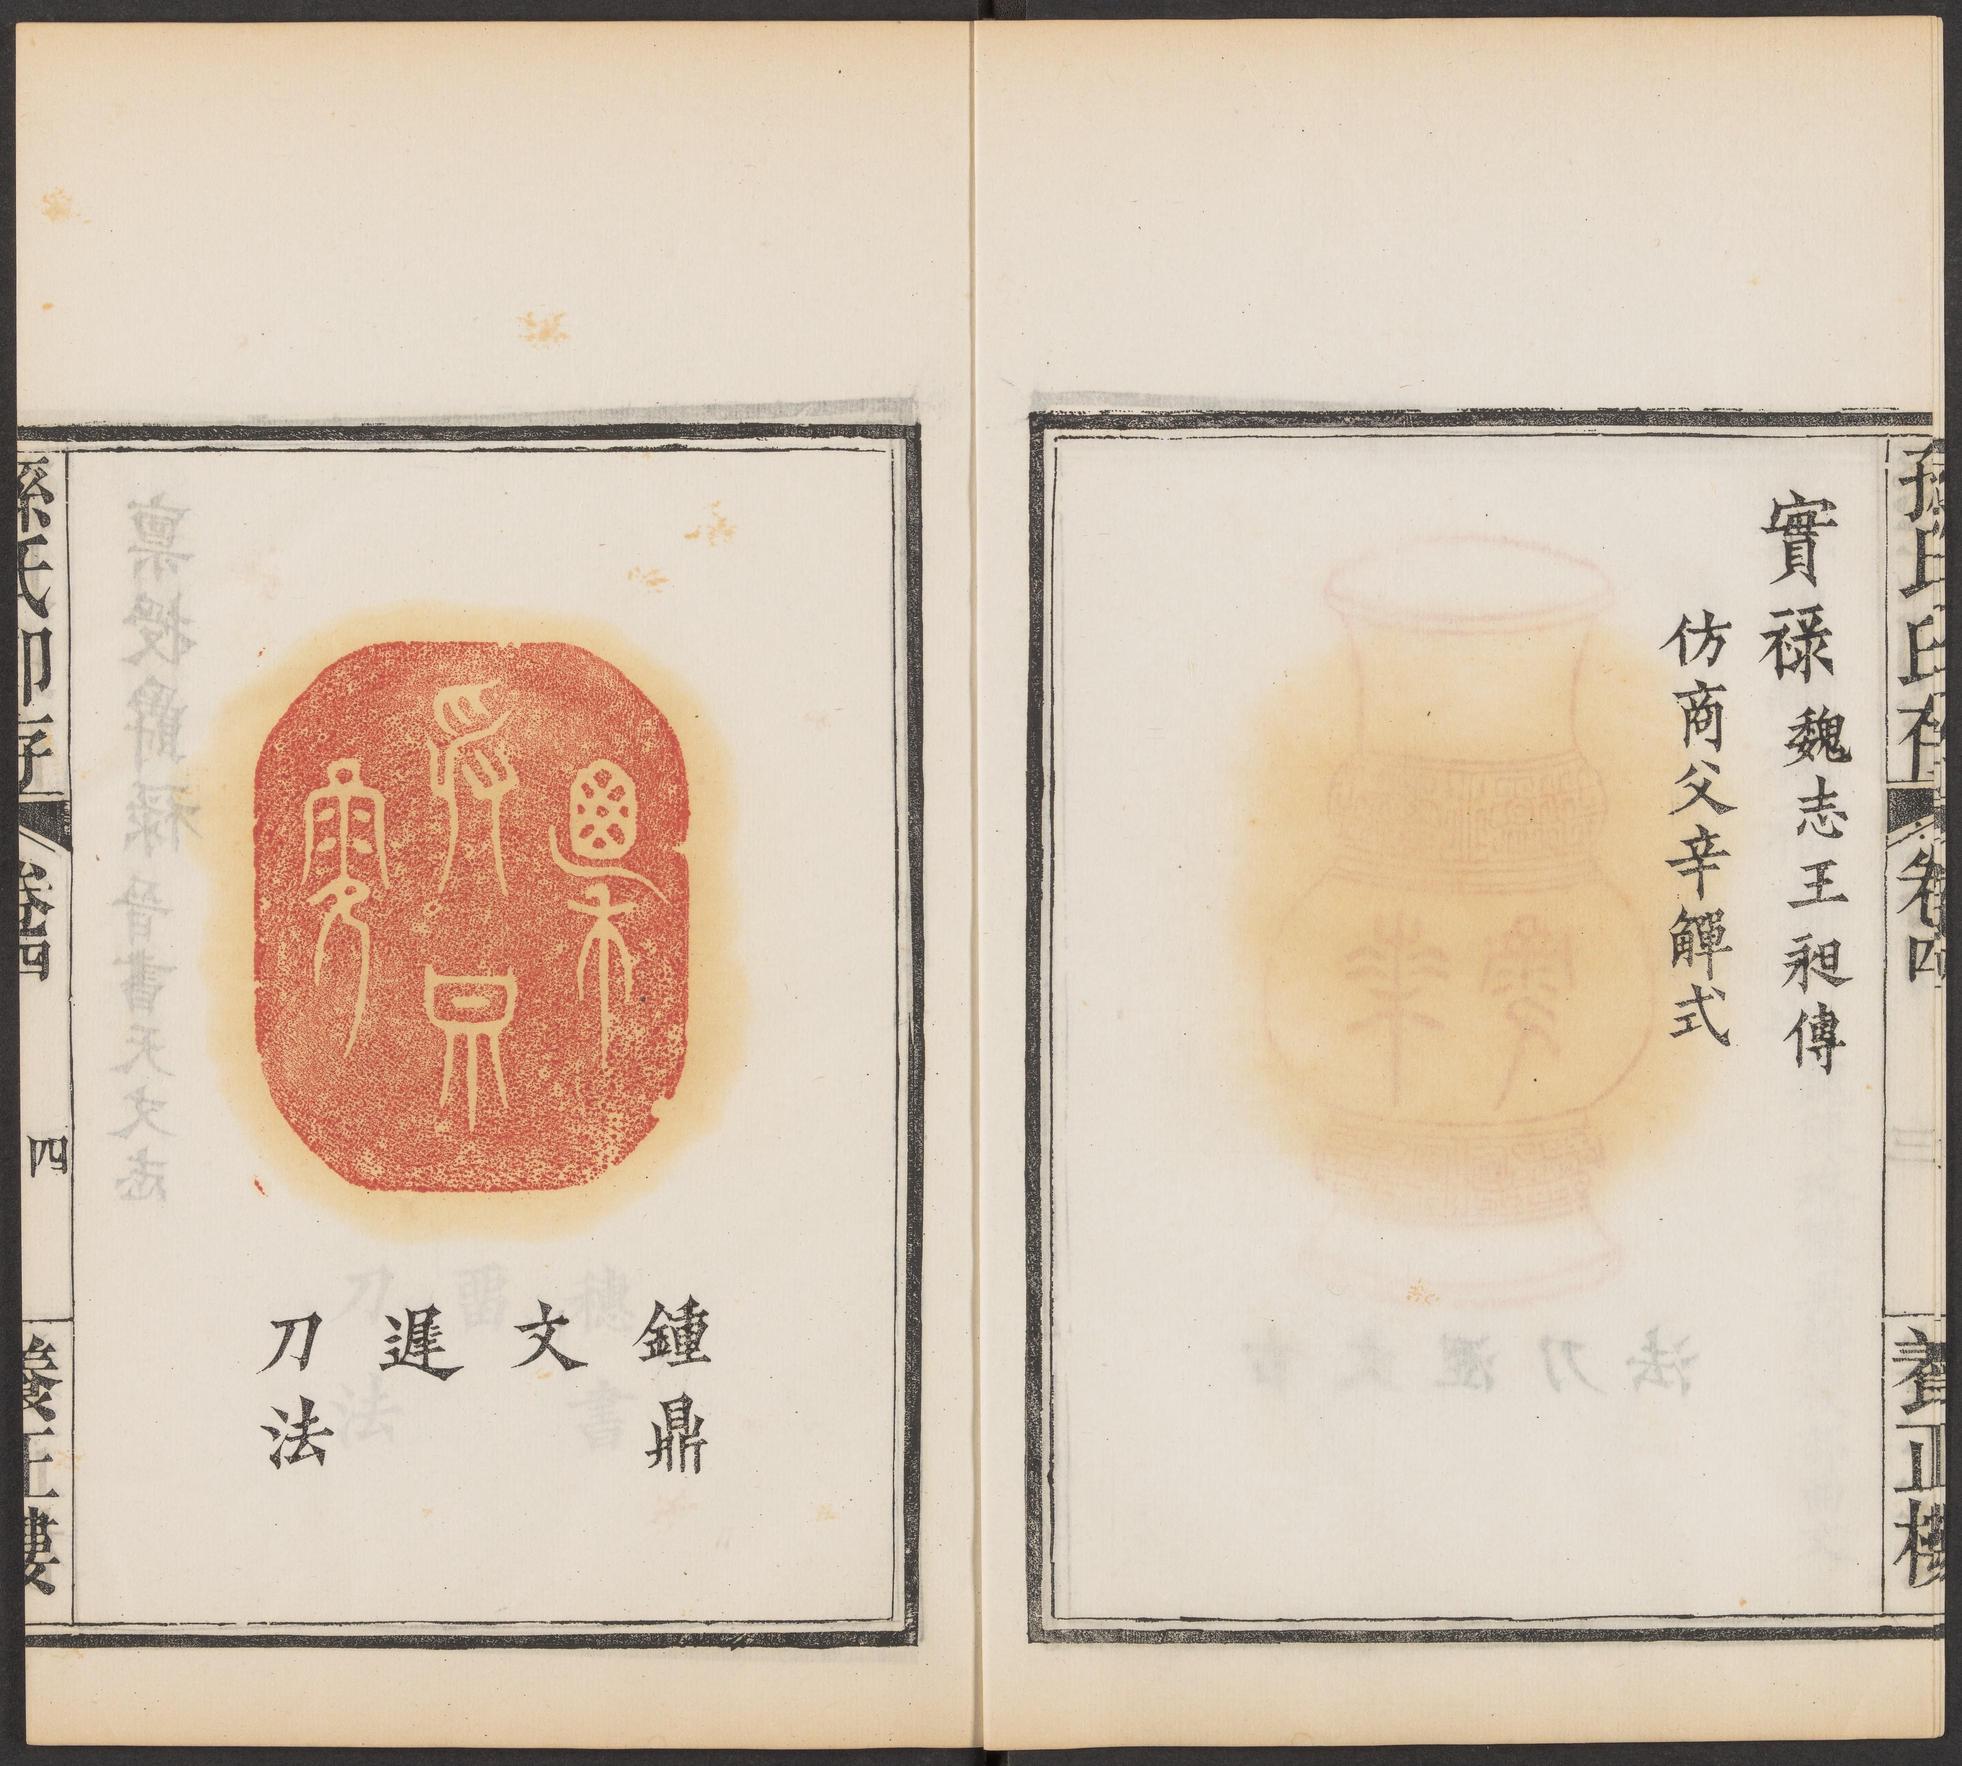 實祿魏志王昶傳
仿商父辛觶式
養正樓
卷四
鍾鼎
文
遲
刀法
孫氏印存
卷四
四
養正樓